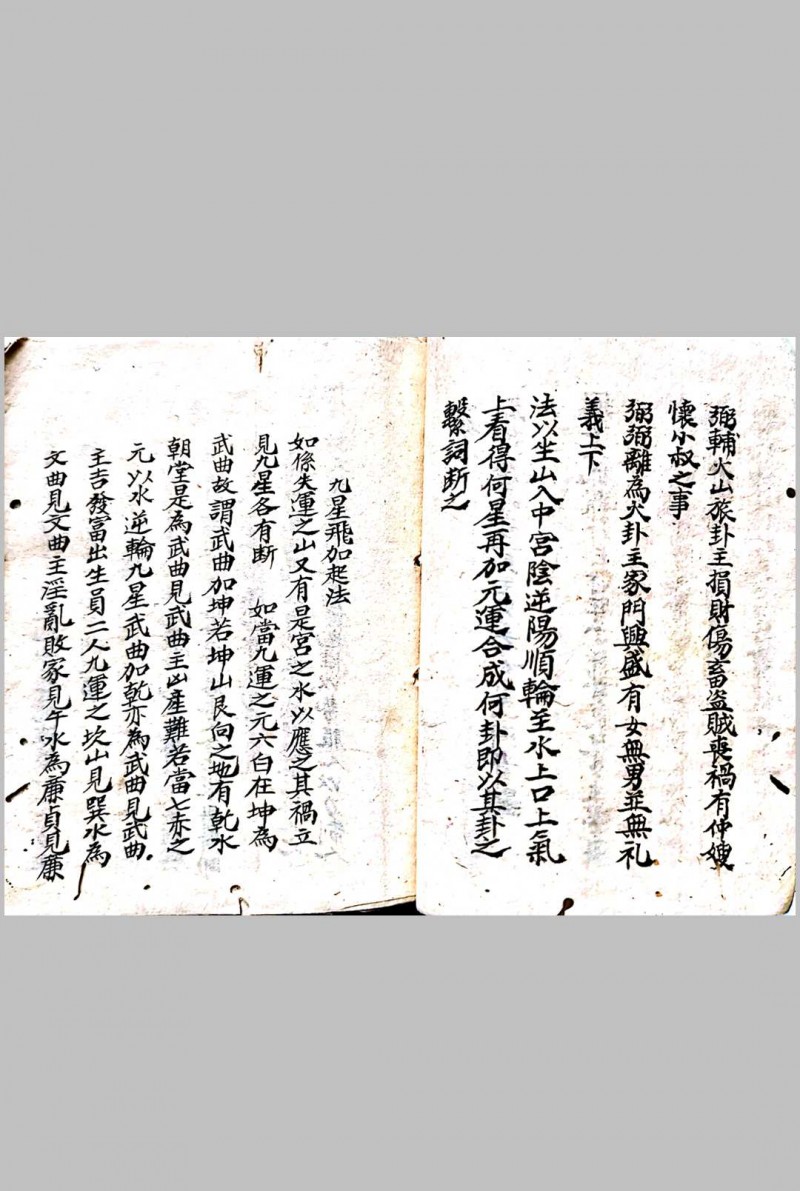 弼輔火山旅卦主損財傷畜盜賊喪禍有仲嫂
懷小叔之事
弼弼離為火卦主家門興盛有女無男並無礼
義上下
法以坐山入中宮陰逆陽順輪至水上口上氣
上看得何星再加元運合成何卦即以其卦之
繫詞断之
九星飛加起法
如係失運之山又有是宮之水以應之其禍立
見九星各有断 如當九運之元六白在坤為
武曲故謂武曲加坤若坤山艮向之地有乾水
朝堂是為武曲見武曲主凶產難若當七赤之
元以水逆輪九星武曲加乾亦為武曲見武曲
主吉發富出生員二人九運之坎山見巽水為
文曲見文曲主淫亂敗家見午水為廉貞見廉